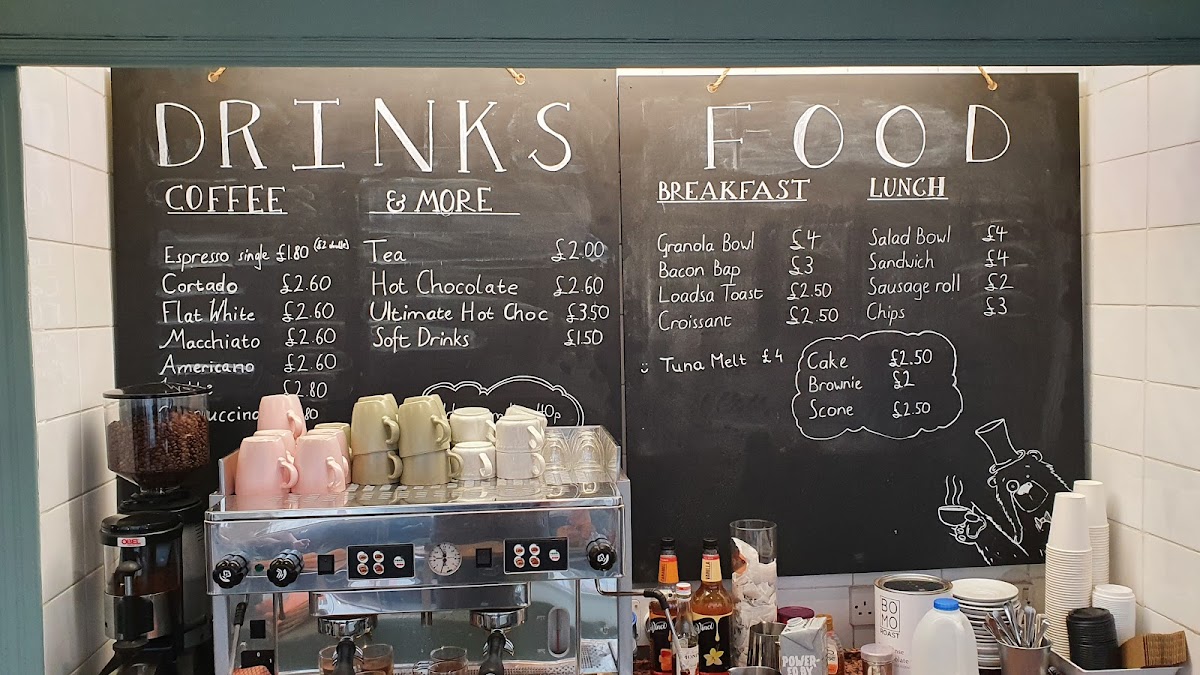 DRINKS
COFFEE
Espresso single £1.80 (£2 double)
Cortado £2.60
Flat White £2.60
Macchiato £2.60
Americano £2.60
£2.80
80
& MORE
Tea £2.00
Hot Chocolate £2.60
Ultimate Hot Choc £3.50
Soft Drinks £1.50
40p
FOOD
BREAKFAST
Granola Bowl £4
Bacon Bap £3
Loadsa Toast £2.50
Croissant £2.50
Tuna Melt £4
LUNCH
Salad Bowl £4
Sandwich £4
Sausage roll £2
Chips £3
Cake £2.50
Brownie £2
Scone £2.50
OBEL
VANILLA
BO
MO
ROAST
POWER-
ED BY